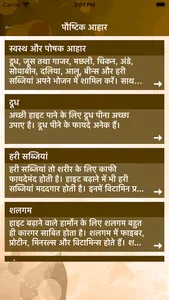 5:01
पौष्टिक आहार
स्वस्थ और पोषक आहार
दूध, जूस तथा गाजर, मछली, चिकन, अंडे,
सोयाबीन, दलिया, आलू, बीन्स और हरी
सब्जियां अपने भोजन में शामिल करें। साथ...
दूध
अच्छी हाइट पाने के लिए दूध पीना अच्छा
उपाए है। दूध पीने के फायदे अनेक हैं।
हरी सब्जियां
हरी सब्जियां तो शरीर के लिए काफी
फायदेमंद होती है। हाइट बढ़ाने में भी हरी
सब्जियां मददगार होती है। इनमें विटामिन प्र...
शलगम
हाइट बढ़ाने वाले हार्मोन के लिए शलगम बहुत
ही कारगर साबित होता है। शलगम में फाइबर,
प्रोटीन, मिनरल्स और विटामिन्स होते हैं। श...